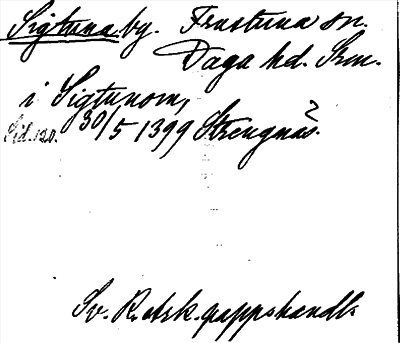 Sigtuna by. Frustuna sn.
Daga hd. Srm.
i Sigtunom,
Sid. 120. 30/5 1399 Strengnäs.
Sv. R. ark. pappshandl.